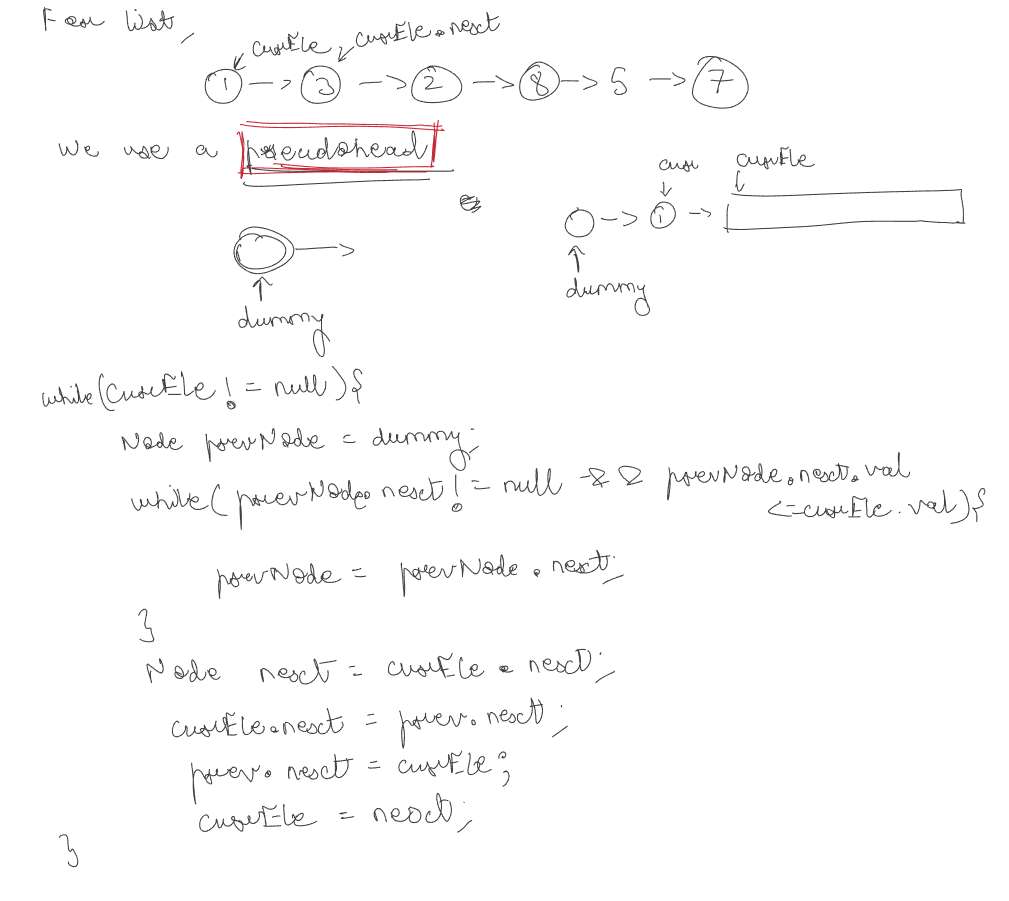 For list,
currEle currEle.next
1 → 3 → 2 → 8 → 5 → 7
We use a pseudohead
curr currEle
1
dummy
dummy
while(currEle != null){
Node prevNode = dummy;
while(prevNode.next != null && prevNode.next.val
<=currEle.val){
prevNode = prevNode.next;
}
Node next = currEle.next;
currEle.next = prev.next;
prev.next = currEle;
currEle = next;
}